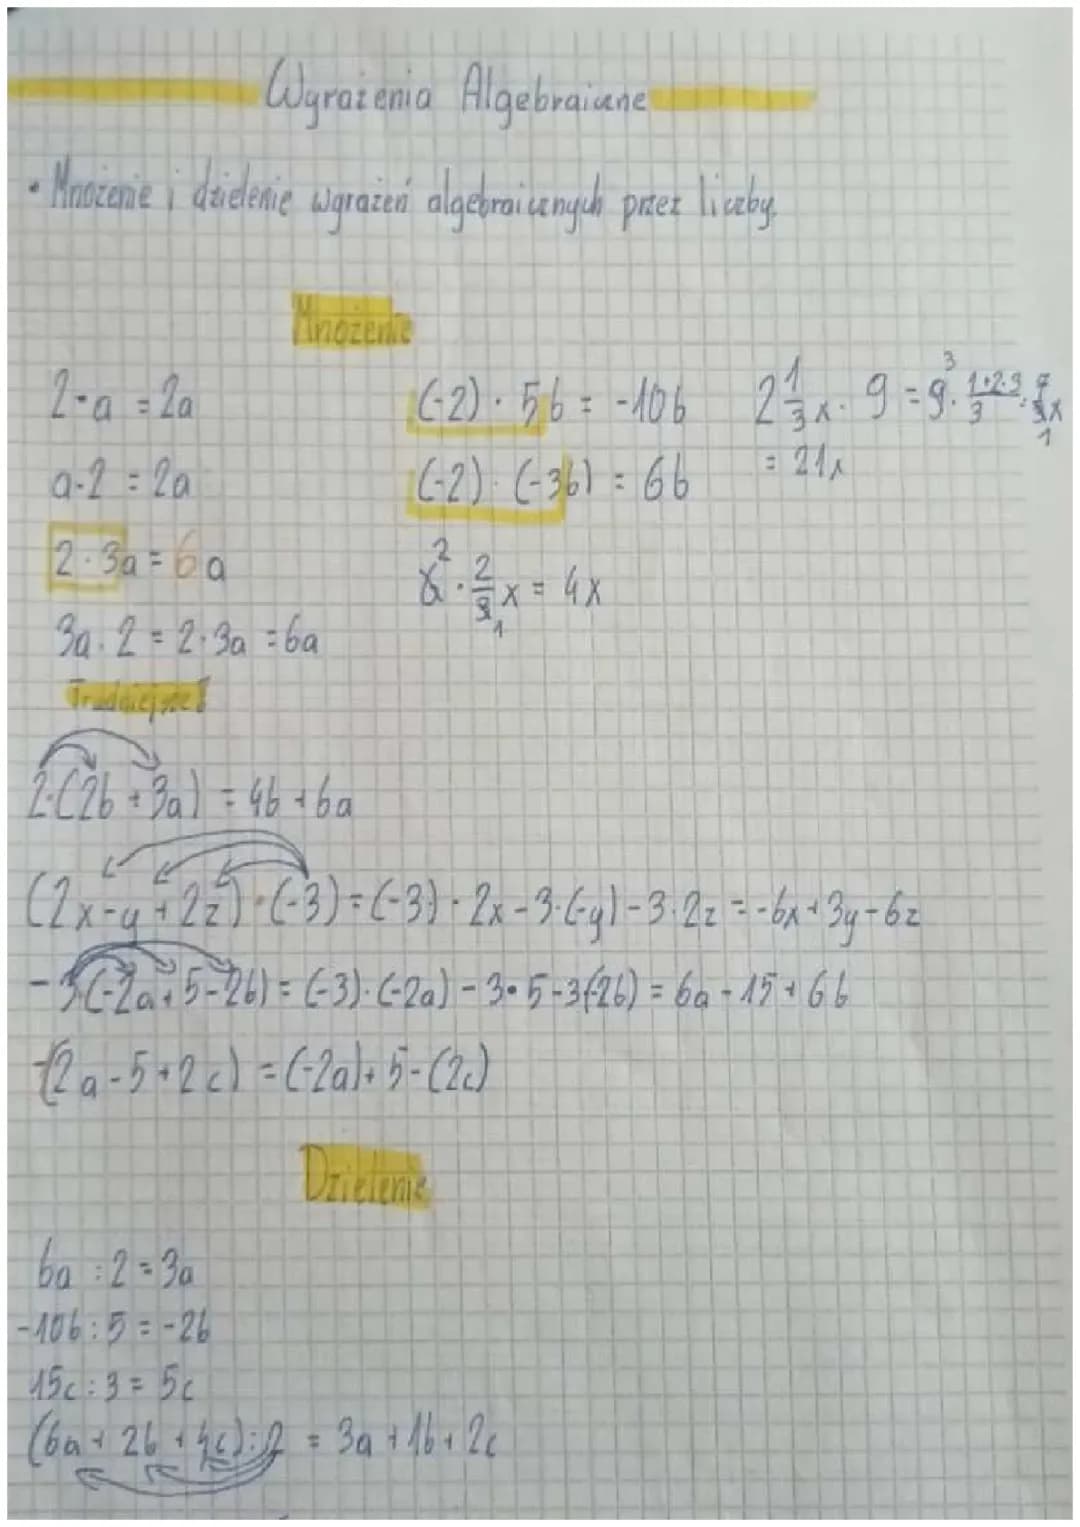 Wyrażenia Algebraiczne
• Mnożenie i dzielenie wyrażeń algebraicznych przez liczby.
Mnożenie
2·a = 2a
a·2 = 2a
2·3a = 6a
3a·2 = 2·3a = 6a
(-2)·5b = -10b
(-2)·(-3b) = 6b
6²·2/3₁x = 4x
2 1/3 x · 9 = 9³· 1+2·3/3 · 7/3₁x
= 21x
Trudniejsze!
2·(2b+3a) = 4b+6a
(2x-y+2z)·(-3) = (-3)·2x-3·(-y)-3·2z = -6x+3y-6z
-3(-2a+5-2b) = (-3)·(-2a)-3·5-3(-2b) = 6a-15+6b
-(2a-5+2c) = (-2a)+5-(2c)
Dzielenie
6a:2 = 3a
-10b:5 = -2b
15c:3 = 5c
(6a+2b+4c):2 = 3a+1b+2c